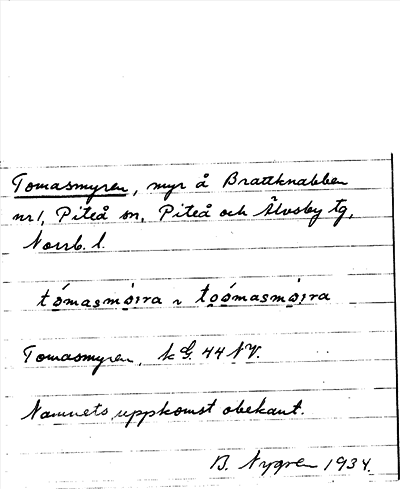 Tomasmyren, myr å Brattknabben
nr1, Piteå sn, Piteå och Älvsby tg,
Norrb. l.
tómasmòɪra ~ toómasmòɪra
Tomasmyren, k G. 44 NV.
Namnets uppkomst obekant.
B. Nygren 1934.